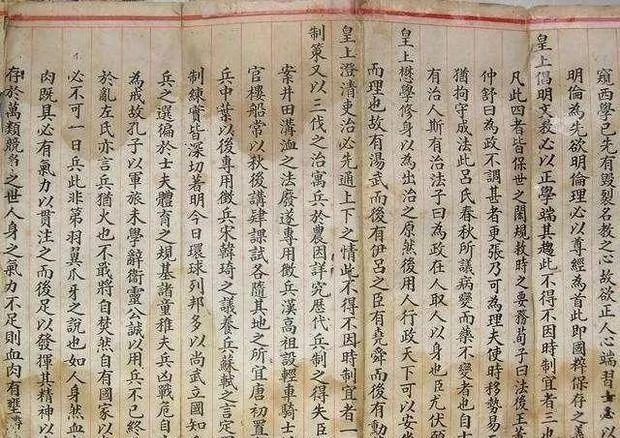 窺西學已先有毀裂名教之心故欲正人心端習士以
明倫為先欲明倫理必以尊經為首此即國粹保存之義
皇上倡明文教必以正學端其趨此不得不因時制宜者三也
凡此四者皆保世之閎規救時之要務荀子曰法後王董
仲舒曰為政不調甚者更張乃可為理夫使時移勢易
猶拘守成法此呂氏春秋所議病變而藥不變者也自古
有治人斯有治法子曰為政在人取人以身也臣尤伏願
皇上懋學修身以為出治之原然後用人行政天下可以安坐
而理也故有湯武而後有伊呂之臣有堯舜而後有勳
皇上澄清吏治必先通上下之情此不得不因時制宜者一
制策又以三代之治寓兵於農因詳究歷代兵制之得失臣
案井田溝洫之法廢遂專用徵兵漢高祖設輕車騎士
官樓船常以秋後講肄課試各隨其地之所宜唐初置
兵中葉以後專用徵兵宋韓琦之議養兵蘇軾之言定
制練實皆深切著明今日環球列邦多以尚武立國
兵之選徧於士夫體育之規基諸童稚夫兵凶戰危自
為戒故孔子以軍旅未學辭衛靈公誠以用兵不已終
於亂左氏亦言兵猶火也不戢將自焚然自有國家以
必不可一日兵此非第羽翼爪牙之說也如人身然血
肉既具必有氣力以貫注之而後足以發揮其精神以
存於萬類競爭之世人身之氣力不足則血肉有壅滯